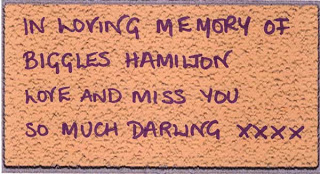 IN LOVING MEMORY OF
BIGGLES HAMILTON
LOVE AND MISS YOU
SO MUCH DARLING XXXX